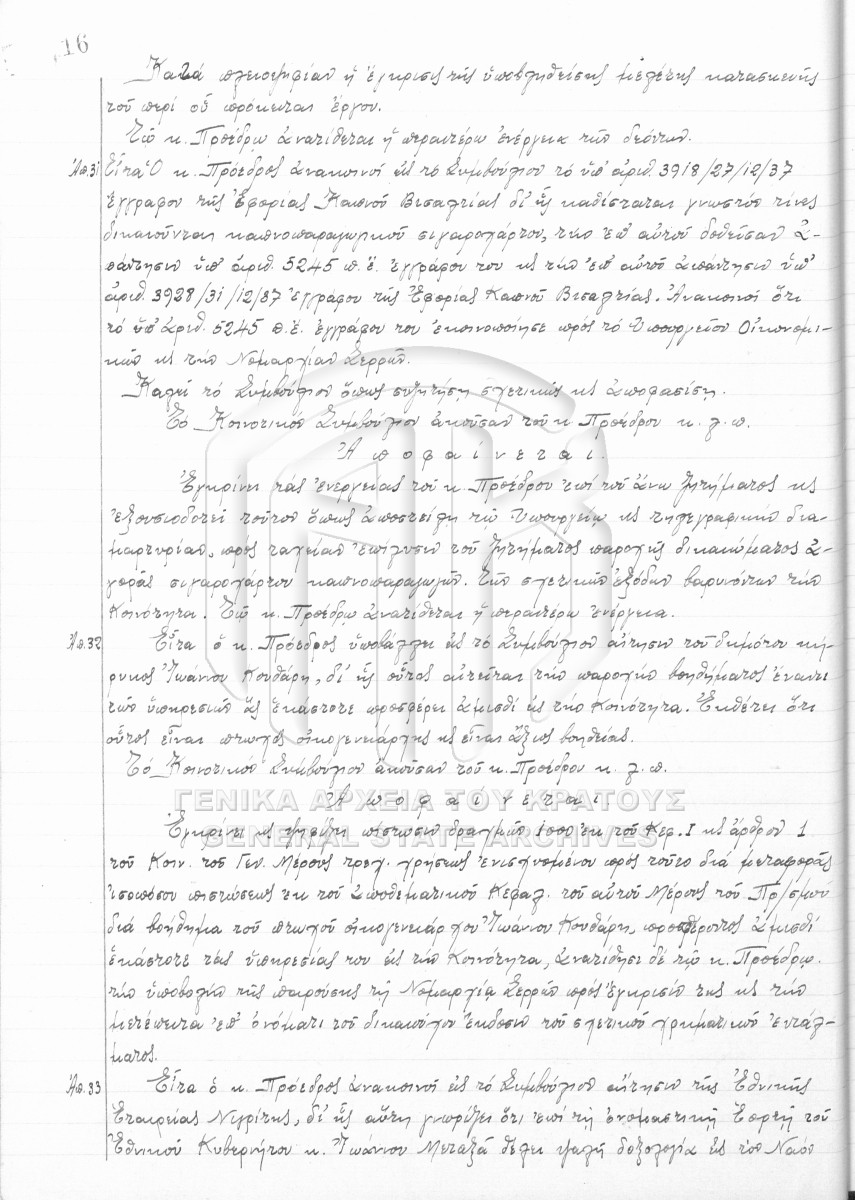 16
Κατά πλειοψηφίαν ἡ ἔγκρισις τῆς ὑποβληθείσης μελέτης κατασκευῆς
τοῦ περί οὗ πρόκειται ἔργου.
Τῷ κ. Προέδρῳ ἀνατίθεται ἡ περαιτέρω ἐνέργεια τῶν δεόντων.
Ἀπ. 31 Εἶτα Ὁ κ. Πρόεδρος ἀνακοινοῖ εἰς τό Συμβούλιον τό ὑπ' ἀριθ. 3918/27/12/37
ἔγγραφον τῆς Ἐφορίας Καπνοῦ Βισαλτίας δι' ἧς καθίσταται γνωστόν τίνες
δικαιοῦνται καπνοπαραγωγικοῦ σιγαροχάρτου, τήν ἐπ' αὐτοῦ δοθεῖσαν ἀ-
πάντησιν ὑπ' ἀριθ. 5245 π.ἔ. ἐγγράφου του κς τήν ἐπ' αὐτοῦ ἀπάντησιν ὑπ'
ἀριθ. 3928/31/12/37 ἐγγράφου τῆς Ἐφορίας Καπνοῦ Βισαλτίας. Ἀνακοινοῖ ὅτι
τό ὑπ' ἀριθ. 5245 π.ἔ. ἔγγραφόν του ἐκοινοποίησε πρός τό Ὑπουργεῖον Οἰκονομι-
κῶν κς τήν Νομαρχίαν Σερρῶν.
Καλεῖ τό Συμβούλιον ὅπως συζητήσῃ σχετικῶς κς ἀποφασίσῃ.
Τό Κοινοτικόν Συμβούλιον ἀκοῦσαν τοῦ κ. Προέδρου κ.λ.π.
Ἀ π ο φ α ί ν ε τ α ι.
Ἐγκρίνει τάς ἐνεργείας τοῦ κ. Προέδρου ἐπί τοῦ ἄνω ζητήματος κς
ἐξουσιοδοτεῖ τοῦτον ὅπως ἀποστείλῃ τῷ Ὑπουργείῳ κς τηλεγραφικήν δια-
μαρτυρίαν, πρός ταχεῖαν ἐπίλυσιν τοῦ ζητήματος παροχῆς δικαιώματος ἀ-
γορᾶς σιγαροχάρτου καπνοπαραγωγῶν. Τῶν σχετικῶν ἐξόδων βαρυνόντων τήν
Κοινότητα. Τῷ κ. Προέδρῳ ἀνατίθεται ἡ περαιτέρω ἐνέργεια.
Ἀπ. 32 Εἶτα ὁ κ. Πρόεδρος ὑποβάλλει εἰς τό Συμβούλιον αἴτησιν τοῦ δημότου κή-
ρυκος Ἰωάννου Κουθάρη, δι' ἧς οὗτος αἰτεῖται τήν παροχήν βοηθήματος ἔναντι
τῶν ὑπηρεσιῶν ἅς ἑκάστοτε προσφέρει ἀμισθί εἰς τήν Κοινότητα. Ἐκθέτει ὅτι
οὗτος εἶναι πτωχός οἰκογενειάρχης κς εἶναι ἄξιος βοηθείας.
Τό Κοινοτικόν Συμβούλιον ἀκοῦσαν τοῦ κ. Προέδρου κ.λ.π.
Ἀ π ο φ α ί ν ε τ α ι
ΓΕΝΙΚΑ ΑΡΧΕΙΑ ΤΟΥ ΚΡΑΤΟΥΣ
Ἐγκρίνει κς ψηφίζει πίστωσιν δραχμῶν 1000 ἐκ τοῦ Κεφ. Ι κς ἄρθρου 1
GENERAL STATE ARCHIVES
τοῦ Κοιν. τοῦ Γεν. Μέρους τρεχ. χρήσεως ἐνισχυομένου πρός τοῦτο διά μεταφορᾶς
ἰσοπόσου πιστώσεως ἐκ τοῦ ἀποθεματικοῦ Κεφαλ. τοῦ αὐτοῦ Μέρους τοῦ Πρ/σμοῦ
διά βοήθημα τοῦ πτωχοῦ οἰκογενειάρχου Ἰωάννου Κουθάρη, προσφέροντος ἀμισθί
ἑκάστοτε τάς ὑπηρεσίας του εἰς τήν Κοινότητα, ἀνατίθησι δέ τῷ κ. Προέδρῳ
τήν ὑποβολήν τῆς παρούσης τῇ Νομαρχίᾳ Σερρῶν πρός ἔγκρισίν της κς τήν
μετέπειτα ἐπ' ὀνόματι τοῦ δικαιούχου ἔκδοσιν τοῦ σχετικοῦ χρηματικοῦ ἐντάλ-
ματος.
Ἀπ. 33 Εἶτα ὁ κ. Πρόεδρος ἀνακοινοῖ εἰς τό Συμβούλιον αἴτησιν τῆς Ἐθνικῆς
Ἑταιρείας Νιγρίτης, δι' ἧς αὕτη γνωρίζει ὅτι ἐπί τῇ ὀνομαστικῇ ἑορτῇ τοῦ
Ἐθνικοῦ Κυβερνήτου κ. Ἰωάννου Μεταξᾶ θέλει ψαλῇ δοξολογία εἰς τόν Ναόν